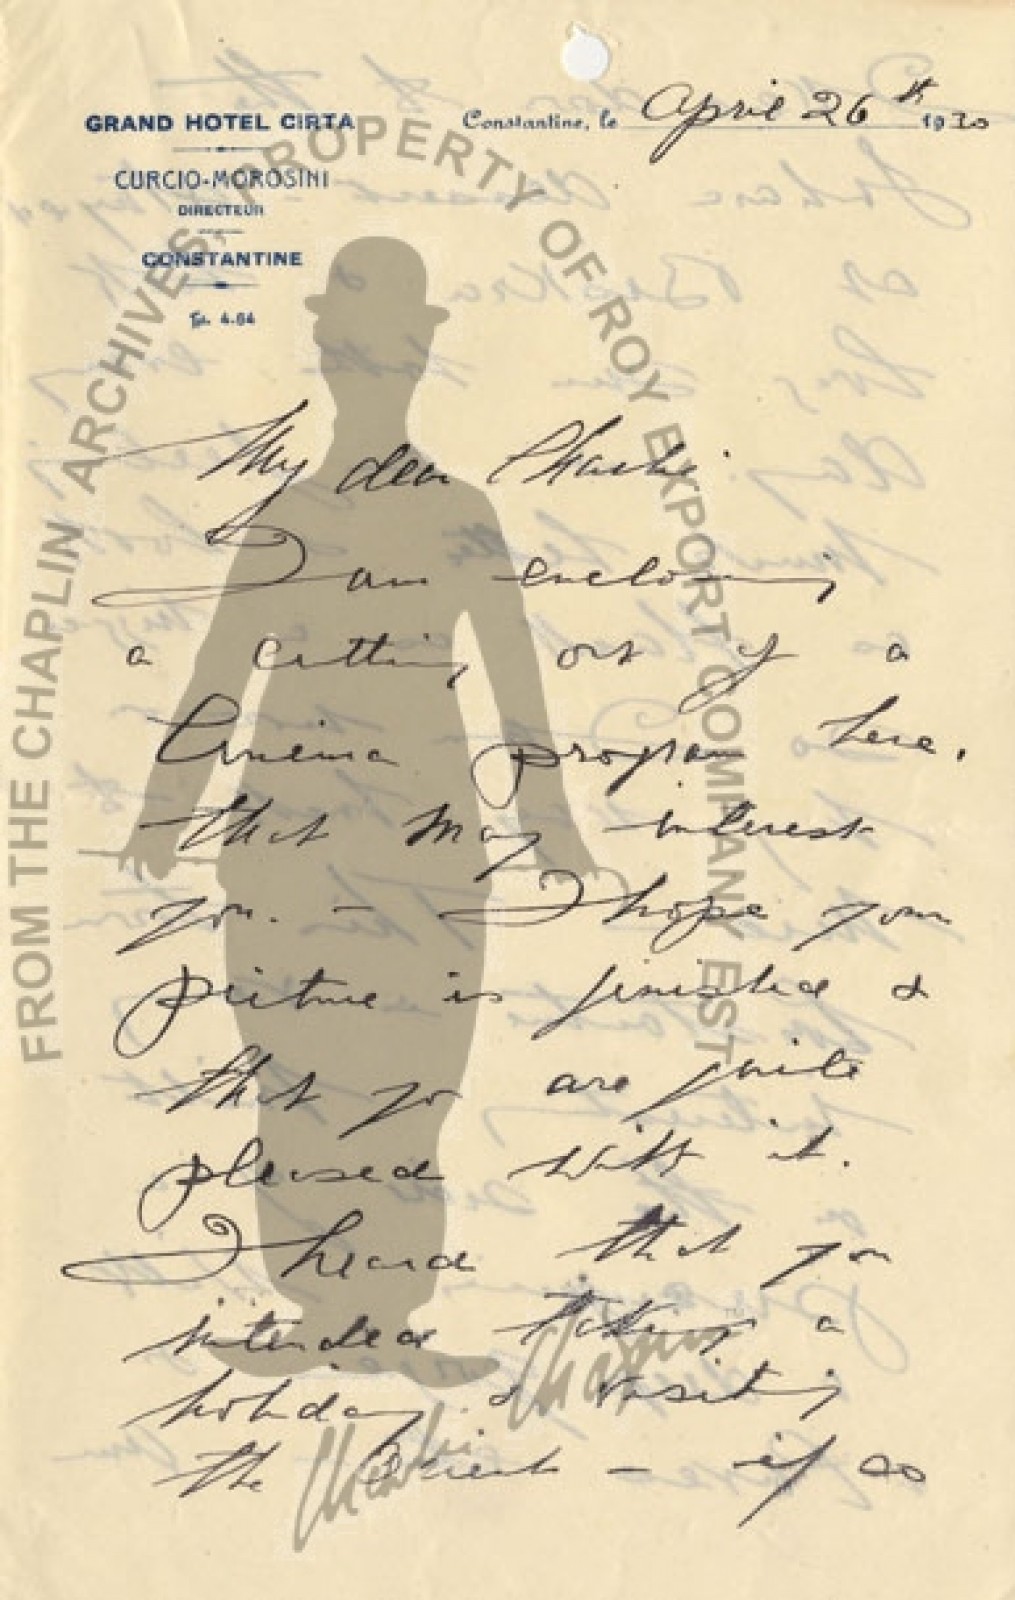 GRAND HOTEL CIRTA
CURCIO-MOROSINI
DIRECTEUR
CONSTANTINE
Tél. 4.64
Constantine, le April 26th 1930
My dear Charlie:
I am enclosing
a cutting out of a
Cinema program here,
that may interest
you. – I hope your
picture is finished &
that you are quite
pleased with it.
I heard that you
intended taking a
holiday & visiting
the Orient – if so
FROM THE CHAPLIN ARCHIVES, PROPERTY OF ROY EXPORT COMPANY EST
Charlie Chaplin